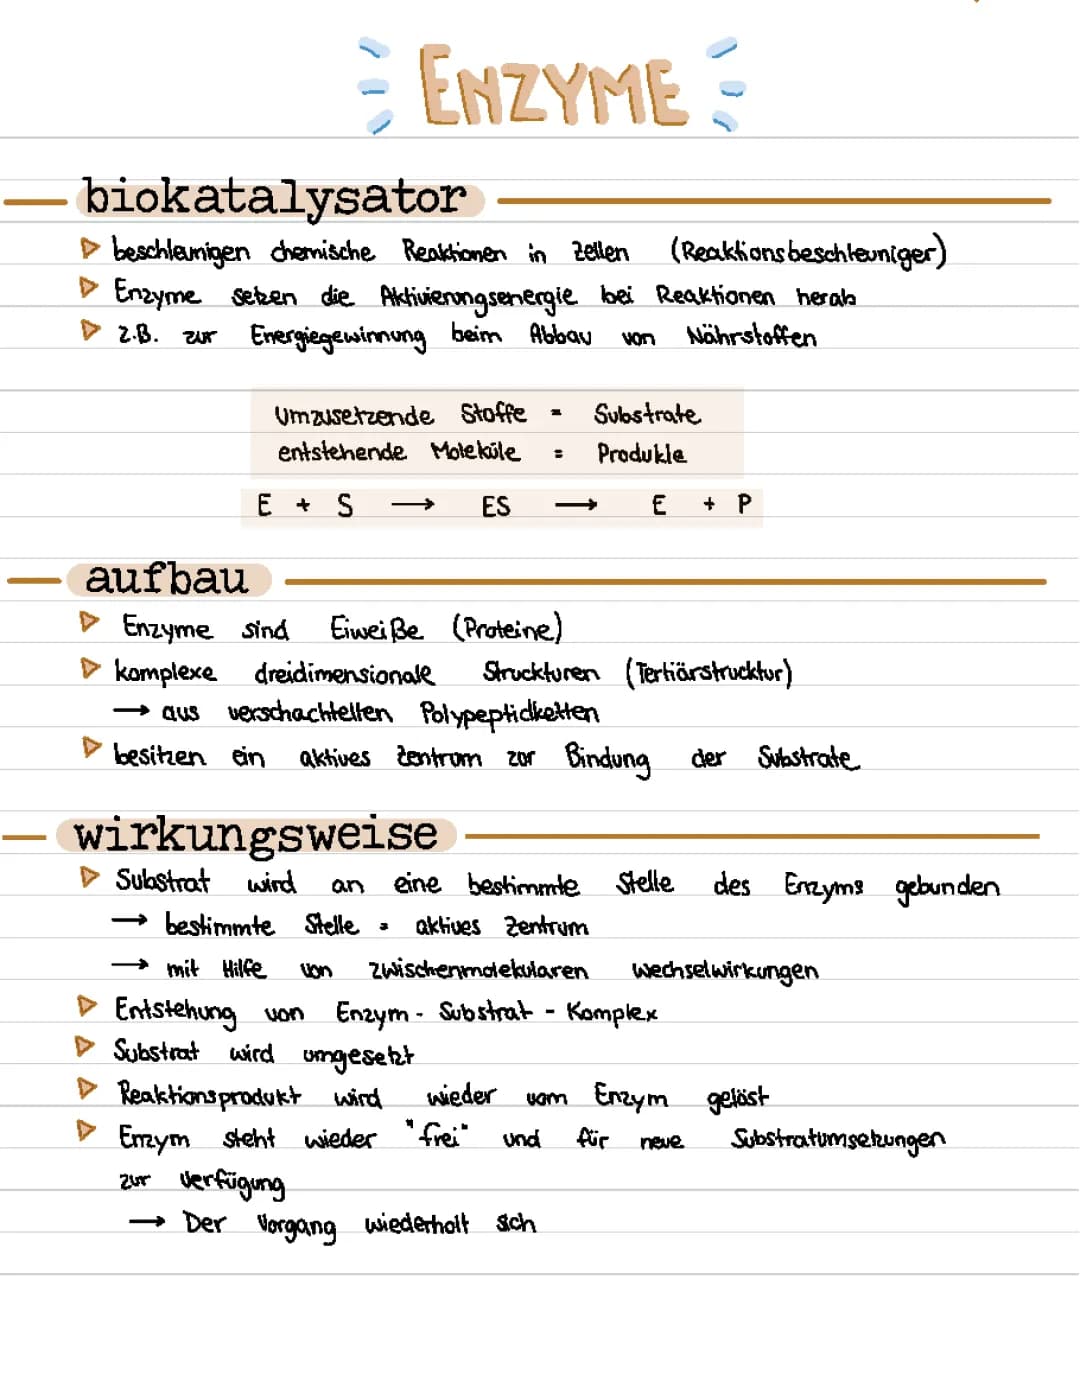 ENZYME
biokatalysator
beschleunigen chemische Reaktionen in Zellen (Reaktionsbeschleuniger)
Enzyme setzen die Aktivierungsenergie bei Reaktionen herab
z.B. zur Energiegewinnung beim Abbau von Nährstoffen
Umzusetzende Stoffe = Substrate
entstehende Moleküle = Produkte
E + S → ES → E + P
aufbau
Enzyme sind Eiweiße (Proteine)
komplexe dreidimensionale Struckturen (Tertiärstrucktur)
→ aus verschachtelten Polypeptidketten
besitzen ein aktives Zentrum zur Bindung der Substrate
wirkungsweise
Substrat wird an eine bestimmte Stelle des Enzyms gebunden
→ bestimmte Stelle = aktives Zentrum
→ mit Hilfe von zwischenmolekularen Wechselwirkungen
Entstehung von Enzym - Substrat - Komplex
Substrat wird umgesetzt
Reaktionsprodukt wird wieder vom Enzym gelöst
Enzym steht wieder "frei" und für neue Substratumsetzungen
zur Verfügung
→ Der Vorgang wiederholt sich